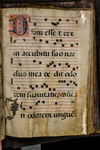 Dum esset rex
in accubitu suo nar
dus mea dedit odo
rem suavitatis
in odorem ungue